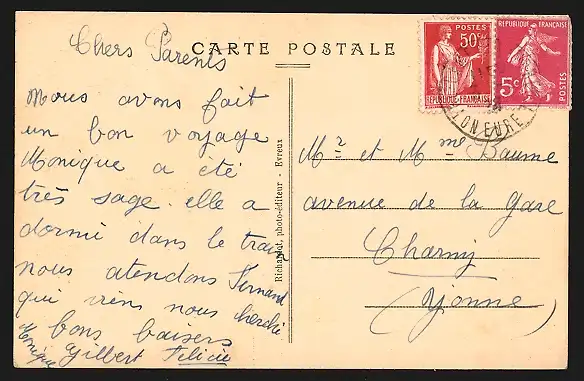 Chers Parents
CARTE POSTALE
Nous avons fait
un bon voyage
Monique a eté
très sage. elle a
dormi dans le train
nous atendons Fernand
qui viens nous cherché
bons baisers
Monique Gilbert Felicie
Richardot, photo-éditeur - Evreux
POSTES
50c
RÉPUBLIQUE FRANÇAISE
RÉPUBLIQUE FRANÇAISE
5c
POSTES
EURE
Mr et Mme Baume
avenue de la Gare
Charny
(Yonne)